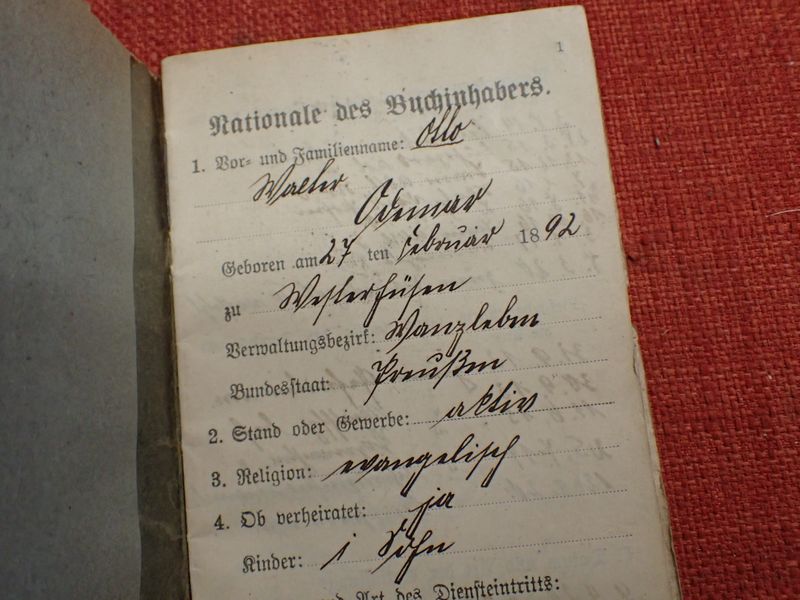 1
Nationale des Buchinhabers.
1. Vor- und Familienname: Otto
Walter
Odemar
Geboren am 27 ten Februar 1892
zu Westerhüsen
Verwaltungsbezirk: Wanzleben
Bundesstaat: Preußen
2. Stand oder Gewerbe: aktiv
3. Religion: evangelisch
4. Ob verheiratet: ja
Kinder: 1 Sohn
und Art des Diensteintritts: